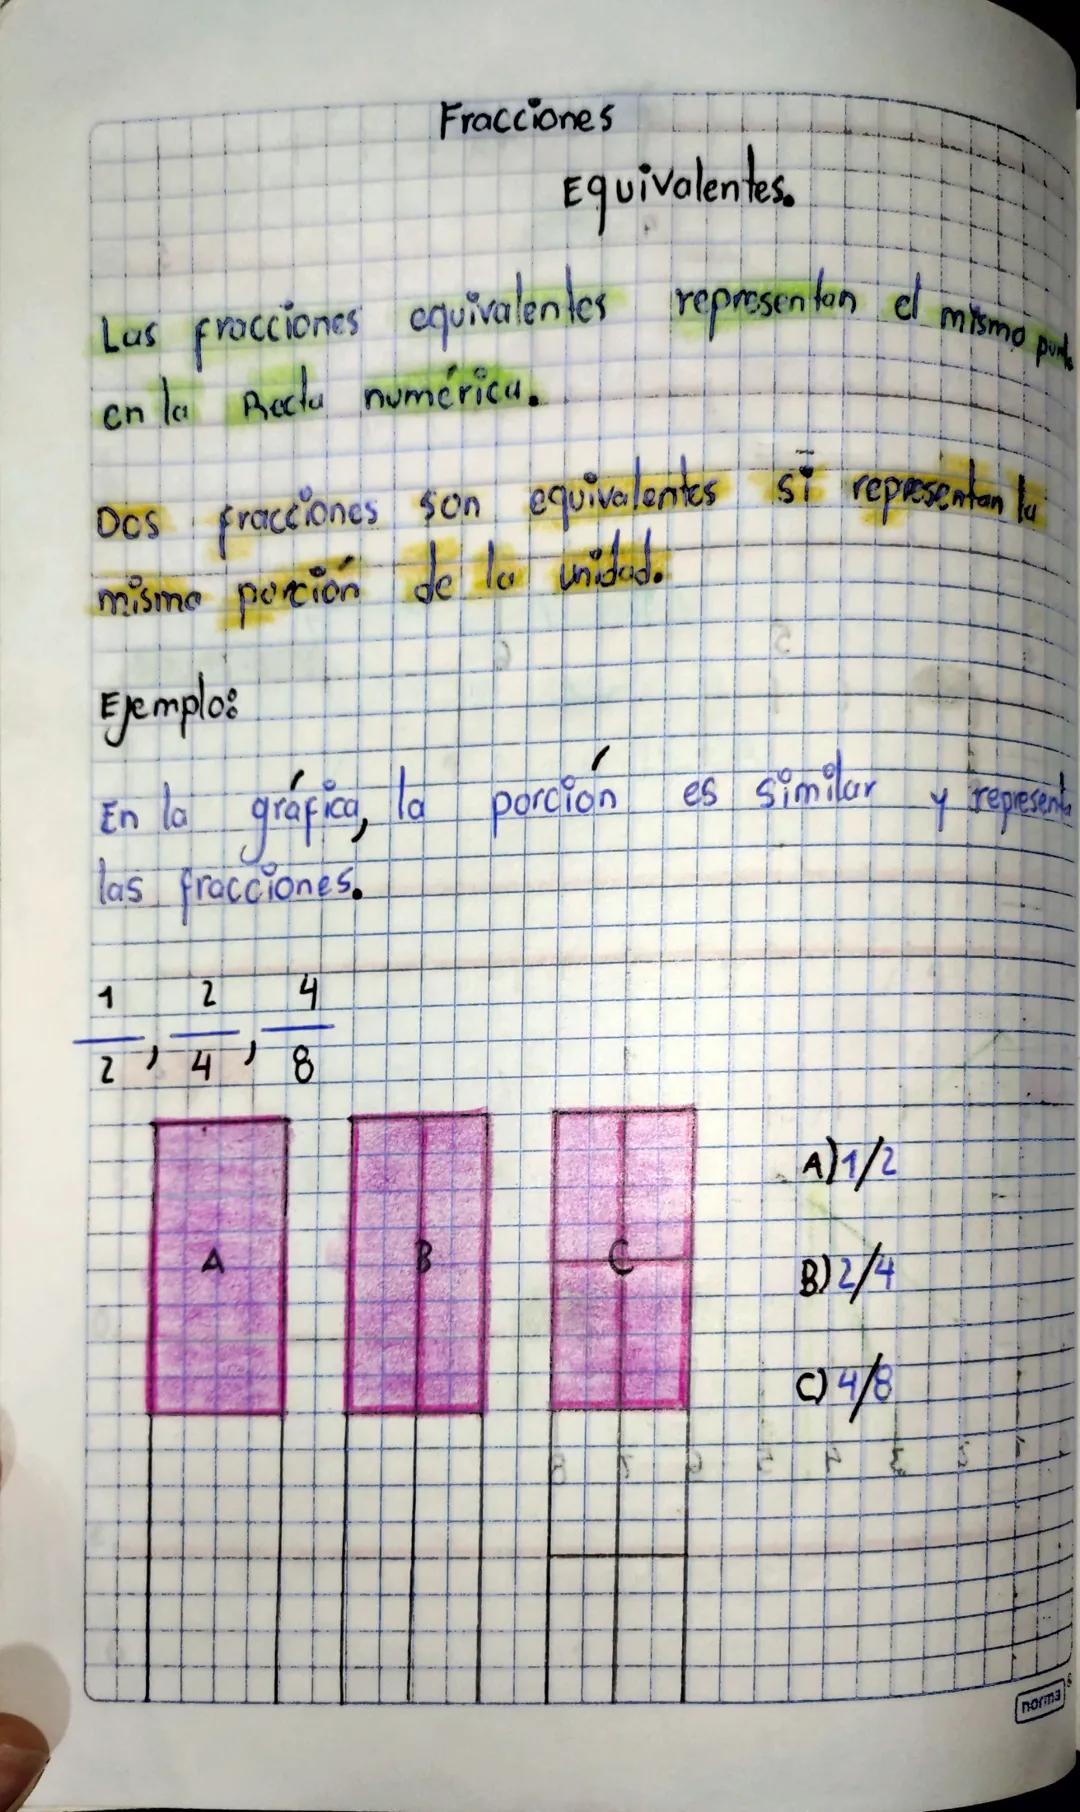 Fracciones
Equivalentes.
Las fracciones equivalentes representan el mismo punto
en la Recta numérica.
Dos fracciones son equivalentes si representan la
misma porción de la unidad.
Ejemplo:
En la gráfica, la porción es similar y representa
las fracciones.
1/2, 2/4, 4/8
A B C
A) 1/2
B) 2/4
C) 4/8
norma